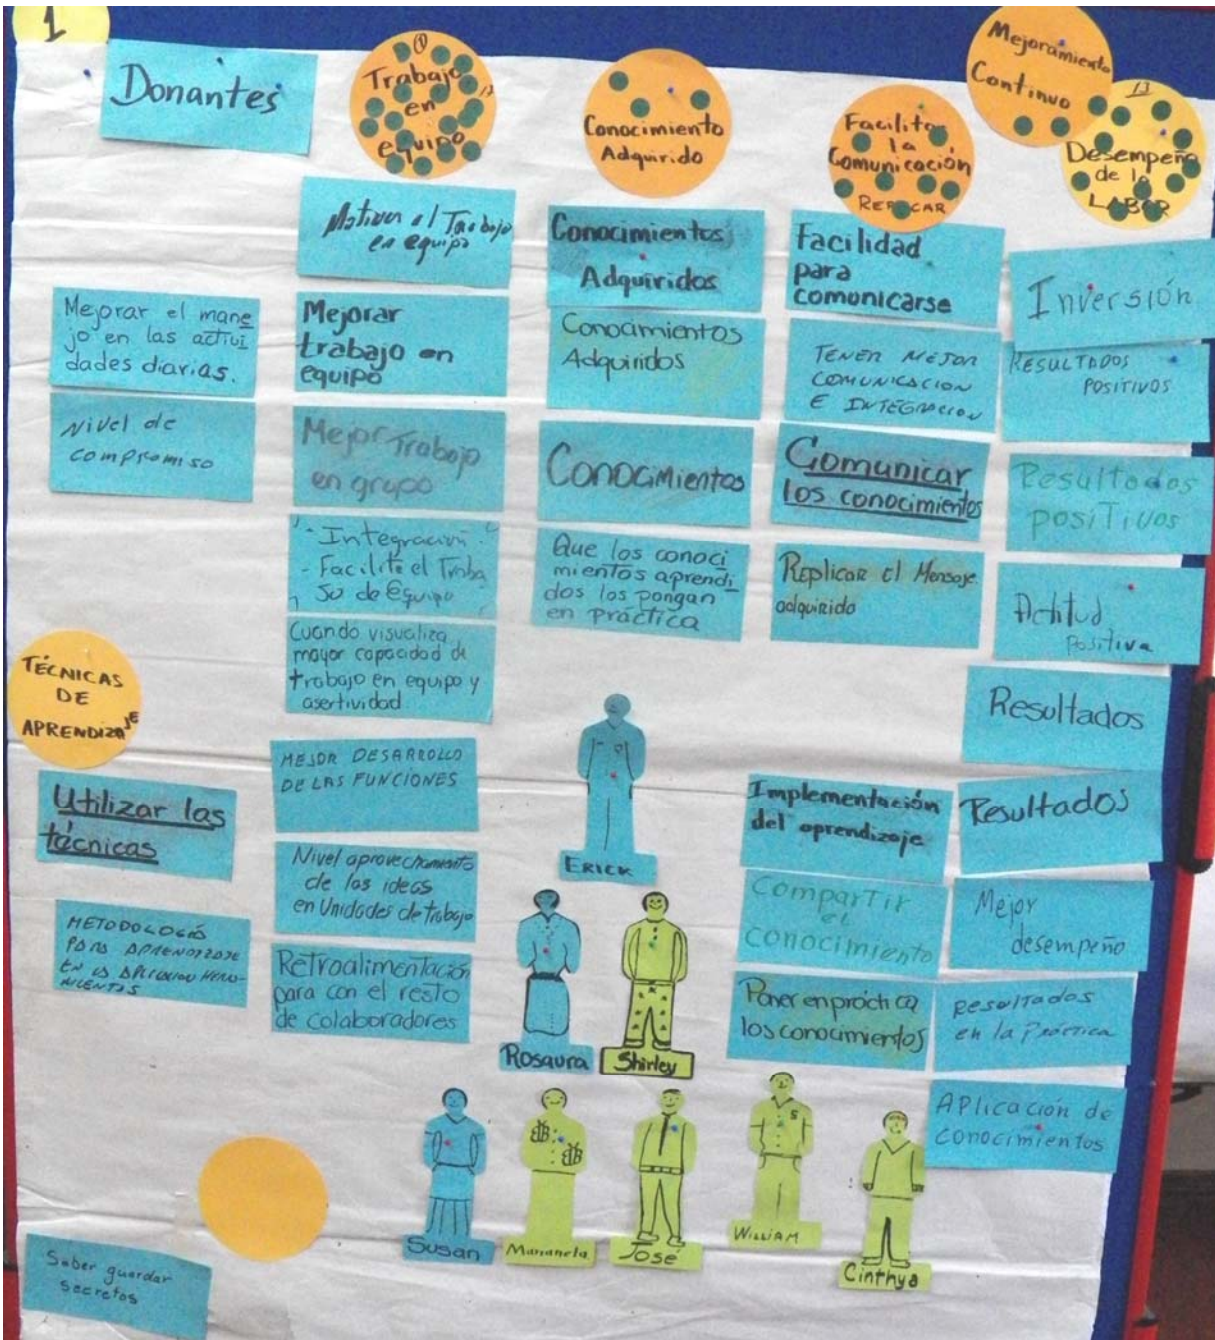 1
Donantes
1
Trabajo
en
equipo
13
Conocimiento
Adquirido
Facilitar
la
Comunicación
REPLICAR
Mejoramiento
Continuo
13
Desempeño
de la
LABOR
Mejorar el mane
jo en las activi
dades diarias.
Nivel de
compromiso
TÉCNICAS
DE
APRENDIZAJE
Utilizar las
técnicas
METODOLOGÍA
PARA APRENDIZAJE
EN LA APLICACION HERRA-
MIENTAS
Saber guardar
secretos
Motivar al Trabajo
en equipo
Mejorar
trabajo en
equipo
Mejor Trabajo
en grupo
- Integración.
- Facilite el Traba
jo de Equipo
Cuando visualiza
mayor capacidad de
trabajo en equipo y
asertividad
MEJOR DESARROLLO
DE LAS FUNCIONES
Nivel aprovechamiento
de las ideas
en Unidades de trabajo
Retroalimentación
para con el resto
de colaboradores
Conocimientos
Adquiridos
Conocimientos
Adquiridos
Conocimientos
Que los conoci
mientos aprendi
dos los pongan
en práctica
Facilidad
para
comunicarse
TENER MEJOR
COMUNICACION
E INTEGRACION
Comunicar
los conocimientos
Replicar el Mensaje
adquirido
Implementación
del aprendizaje
Compartir
el
conocimiento
Poner en práctica
los conocimientos
Inversión
RESULTADOS
POSITIVOS
Resultados
positivos
Actitud
Positiva
Resultados
Resultados
Mejor
desempeño
Resultados
en la Práctica
Aplicación de
conocimientos
ERICK
Rosaura
Shirley
Susan
Marianela
José
WILLIAM
S
Cinthya